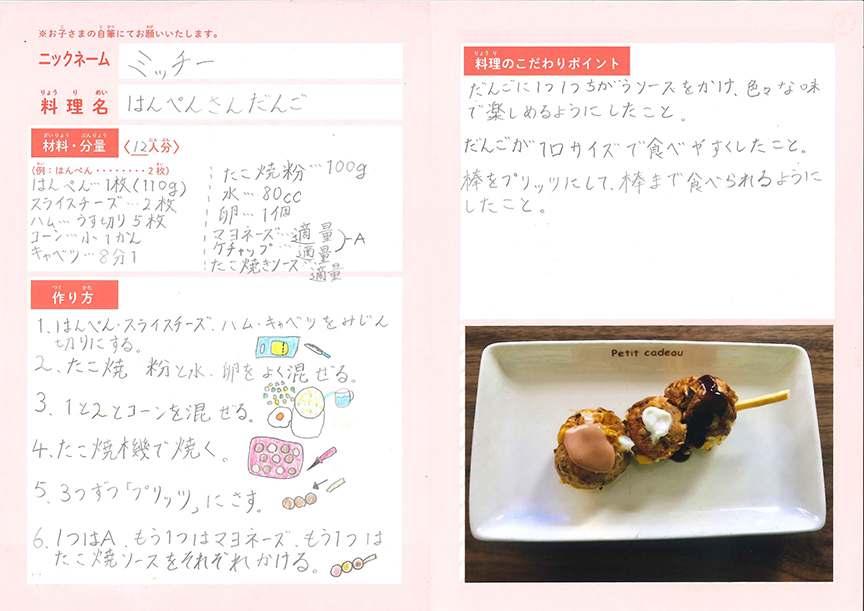 ※お子さまの自筆にてお願いいたします。
ニックネーム ミッチー
料理名 はんぺんさんだんご
材料・分量 〈12人分〉
(例:はんぺん・・・・・・・・2枚)
はんぺん…1枚(110g)
スライスチーズ…2枚
ハム…うす切り5枚
コーン…小1かん
キャベツ…8分1
たこ焼粉…100g
水…80cc
卵…1個
マヨネーズ…適量
ケチャップ…適量 〉-A
たこ焼きソース…適量
作り方
1.はんぺん・スライスチーズ、ハム・キャベツをみじん
切りにする。
2.たこ焼 粉と水、卵をよく混ぜる。
3.1と2とコーンを混ぜる。
4.たこ焼機で焼く。
5.3つずつ「プリッツ」にさす。
6.1つはA、もう1つはマヨネーズ、もう1つは
たこ焼ソースをそれぞれかける。
料理のこだわりポイント
だんごに1つ1つちがうソースをかけ、色々な味
で楽しめるようにしたこと。
だんごが1口サイズで食べやすくしたこと。
棒をプリッツにして、棒まで食べられるように
したこと。
Petit cadeau